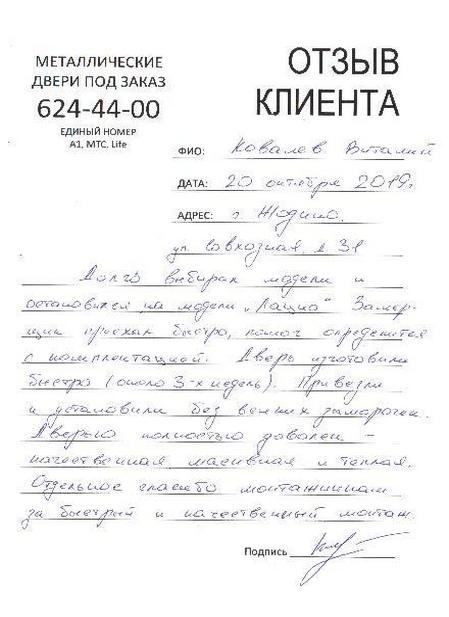 МЕТАЛЛИЧЕСКИЕ
ДВЕРИ ПОД ЗАКАЗ
624-44-00
ЕДИНЫЙ НОМЕР
А1, МТС, Life
ОТЗЫВ
КЛИЕНТА
ФИО: Ковалев Виталий
ДАТА: 20 октября 2019г
АДРЕС: г. Жодино.
ул. Совхозная, д 31
Долго выбирал модели и
остановился на модели „Лацио" Замер-
щик приехал быстро, помог определится
с комплектацией. Дверь изготовили
быстро (около 3-х недель). Привезли
и установили без всяких заморочек.
Дверью полностью доволен –
качественная масивная и теплая.
Отдельное спасибо монтажникам
за быстрый и качественный монтаж.
Подпись